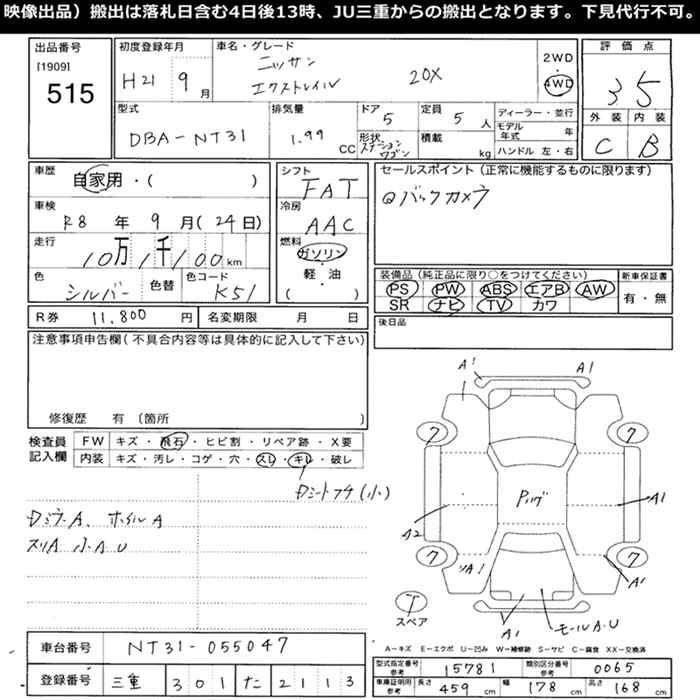 映像出品）搬出は落札日含む4日後13時、JU三重からの搬出となります。下見代行不可。
出品番号
[1909]
515
初度登録年月
H21 9月
車名・グレード
ニッサン
エクストレイル 20X
2WD・
4WD
評価点
3.5
外装 内装
C B
型式
DBA-NT31
排気量
1.99 CC
ドア
5
形状
ステーションワゴン
定員
5 人
積載
kg
ディーラー・並行
モデル年式 年
ハンドル 左・右
車歴
自家用・( )
車検
R8年 9月(24日)
走行
10万1千100km
色
シルバー
色替
色コード
K51
シフト
FAT
冷房
AAC
燃料
ガソリン・
軽・油
( )
セールスポイント（正常に機能するものに限ります）
バックカメラ
装備品（純正品に限り○をつけてください）
PS PW ABS エアB AW
SR ナビ TV カワ
新車保証書
有・無
R券 11,800 円
名変期限 月 日
後日品
注意事項申告欄（不具合内容等は具体的に記入して下さい）
修復歴 有〔箇所 〕
検査員
記入欄
FW キズ・飛石・ヒビ割・リペア跡・X要
内装 キズ・汚レ・コゲ・穴・スレ・キレ・破レ
Dシートフチ(小)
Dミラ-A、ホイルA
スリA 小AU
A1 A1
7 7
Pハゲ
A2 A1
7 7
ソA1 A1
A1 モールA.U
T
スペア
A－キズ E－エクボ U－凹み W－補修跡 S－サビ C－腐食 XX－交換済
車台番号 NT31-055047
登録番号 三重 301 た 2113
型式指定番号
参考
15781
類別区分番号
参考
0065
車庫証明用
参考
長さ 459 cm 幅 178 cm 高さ 168 cm